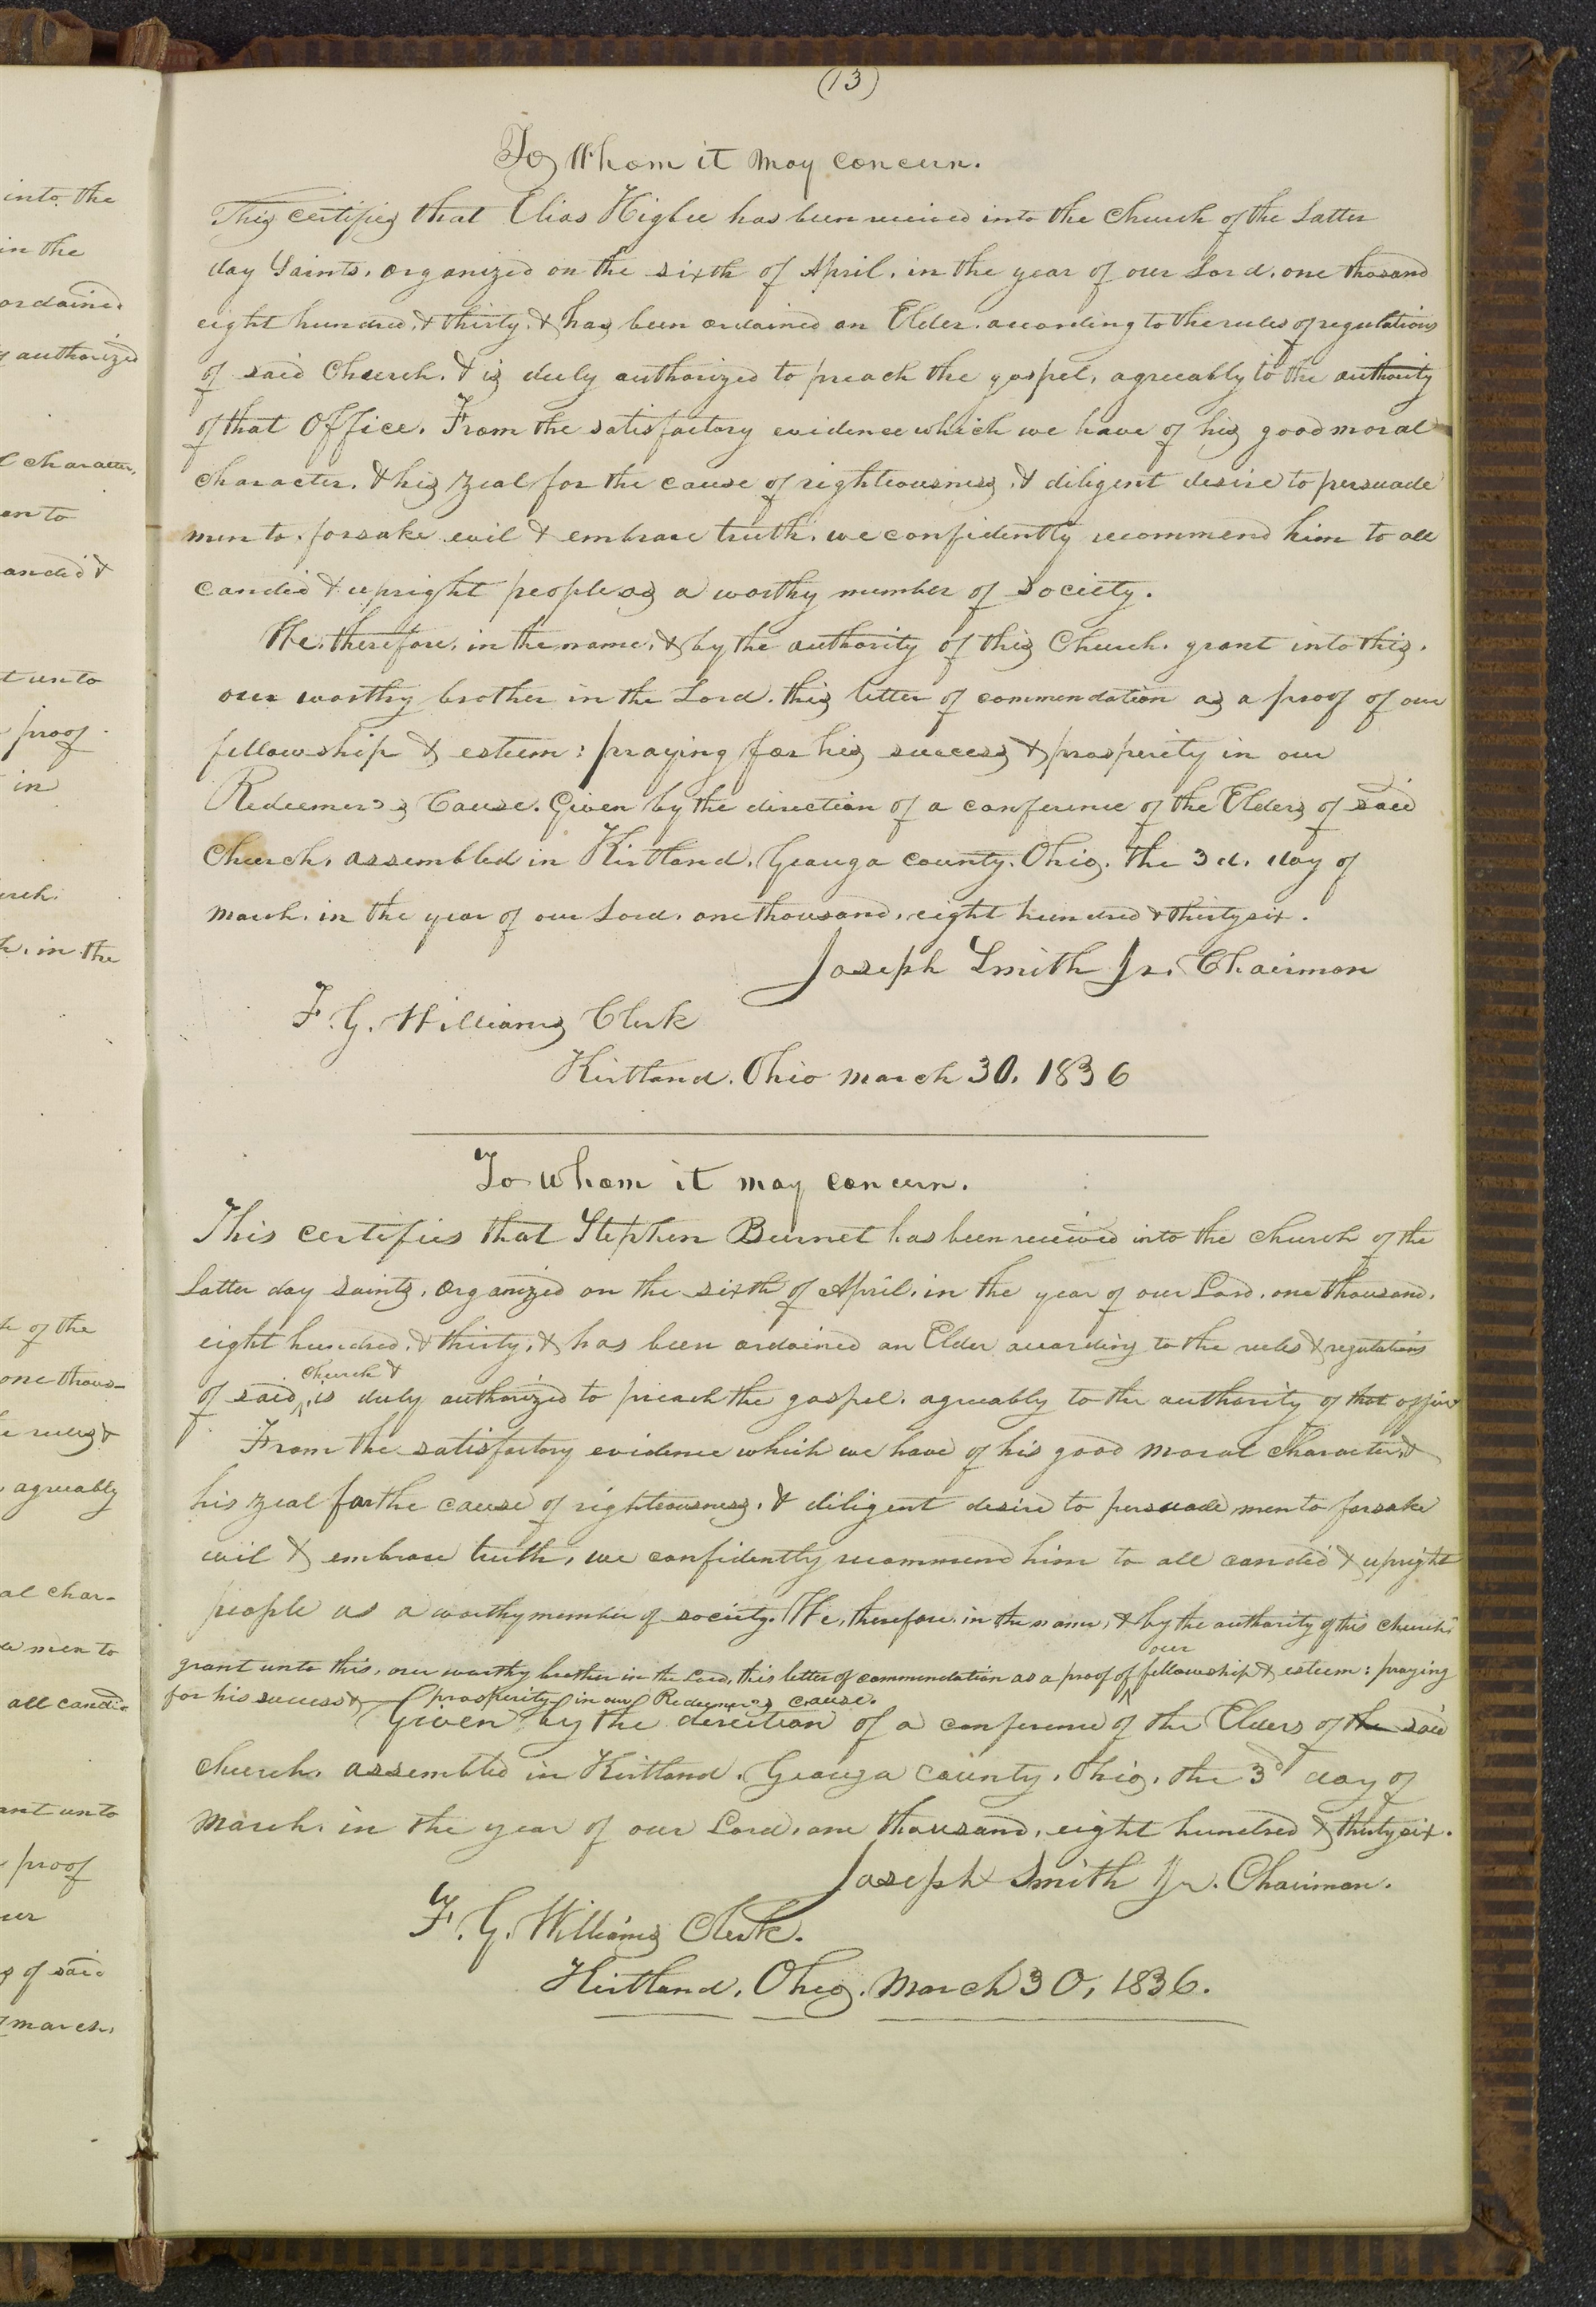 into the
in the
ordained
authorized
l character,
en to
andid &
t unto
proof
in
urch.
h, in the
h of the
one thous-
e rules &
agreeably
al char-
e men to
all candi-
ant unto
proof
our
s of said
march,
(13)
To Whom it may concern.
This certifies that Elias Higbee has been received into the Church of the Latter
day Saints, organized on the sixth of April, in the year of our Lord, one thosand
eight hundred, & thirty, & has been ordained an Elder, according to the rules of regulations
of said Church, & is duly authorized to preach the gospel, agreeably to the authority
of that Office. From the satisfactory evidence which we have of his good moral
character, & his zeal for the cause of righteousness, & diligent desire to persuade
men to forsake evil & embrace truth, we confidently recommend him to all
candid & upright people as a worthy member of Society.
We, therefore, in the name, & by the authority of this Church, grant into this,
our worthy brother in the Lord, this letter of commendation as a proof of our
fellowship & esteem: praying for his success & prosperity in our
Redeemer's Cause. Given by the direction of a conference of the Elders of said
Church, assembled in Kirtland, Geauga county, Ohio, the 3d. day of
March, in the year of our Lord, one thousand, eight hundred & thirty six.
Joseph Smith Jr. Chairman
F. G. Williams Clerk
Kirtland, Ohio March 30, 1836
To whom it may concern.
This certifies that Stephen Burnet has been received into the church of the
Latter day saints, organized on the sixth of April, in the year of our Lord, one thousand,
eight hundred, & thirty, & has been ordained an Elder according to the rules & regulations
church &
of said ^, is duly authorized to preach the gospel, agreeably to the authority of that office
From the satisfactory evidence which we have of his good moral character, &
his zeal for the cause of righteousness, & diligent desire to persuade men to forsake
evil & embrace truth, we confidently recommend him to all candid & upright
people as a worthy member of society. We, therefore, in the name, & by the authority of this church,
our
grant unto this, our worthy brother in the Lord, this letter of commendation as a proof of ^ fellowship & esteem: praying
for his success & prosperity in our Redeemer's cause.
Given by the direction of a conference of the Elders of the said
church, assembled in Kirtland, Geauga county, Ohio, the 3d day of
March, in the year of our Lord, one thousand, eight hundred & thirty six.
Joseph Smith Jr. Chairman.
F. G. Williams Clerk.
Kirtland, Ohio, March 30, 1836.